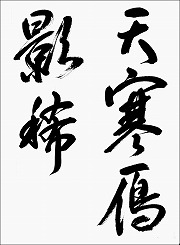 天寒鴈
影稀